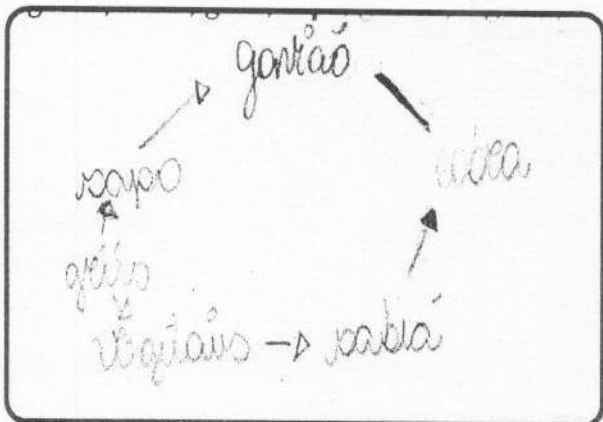 gavião
sapo
cobra
grilo
vegetais → sabiá